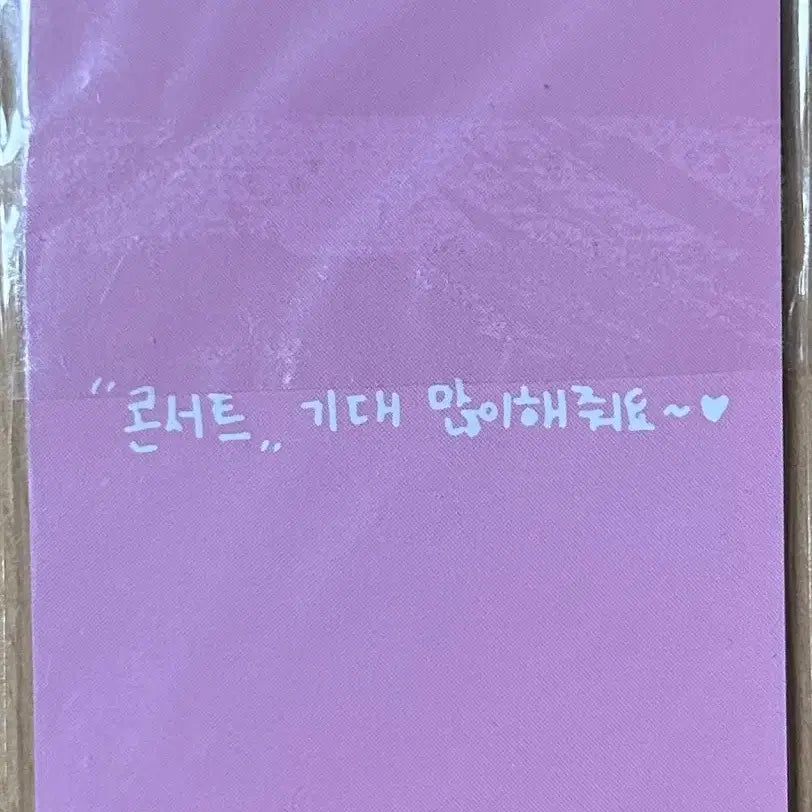 "콘서트„ 기대 많이해줘요~♥